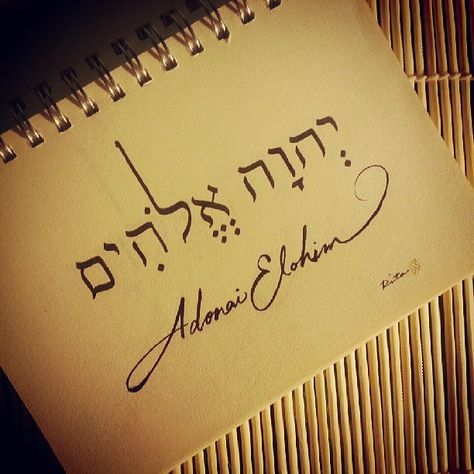 יְהֹוָה אֱלֹהִים
Adonai Elohim
Rita